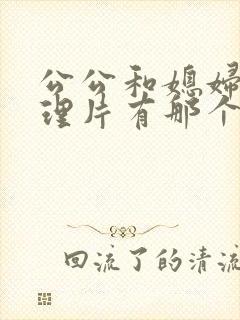 公公和媳婦
理片有那个
回流了的清流